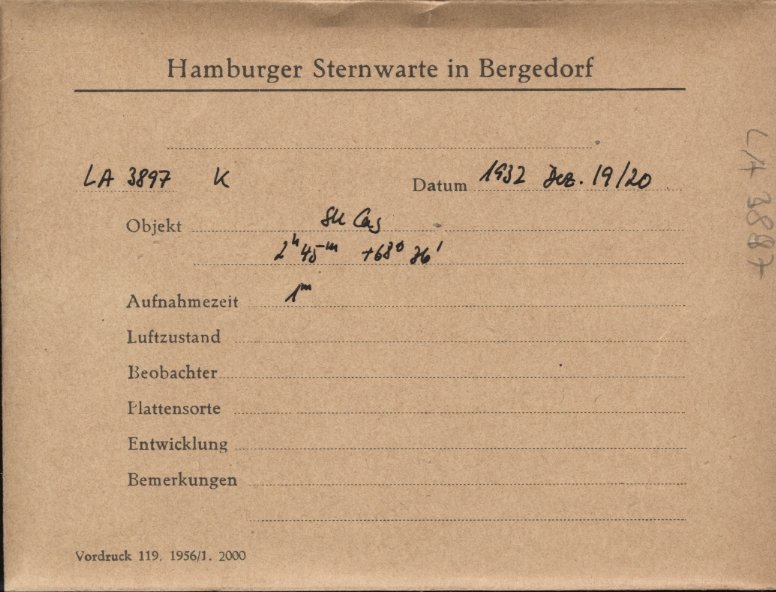 Hamburger Sternwarte in Bergedorf
LA 3897 K Datum 1932 Dez. 19/20
Objekt SU Cas
2h 45m +68° 36'
Aufnahmezeit 1m
Luftzustand
Beobachter
Plattensorte
Entwicklung
Bemerkungen
Vordruck 119. 1956/1. 2000
LA 3897